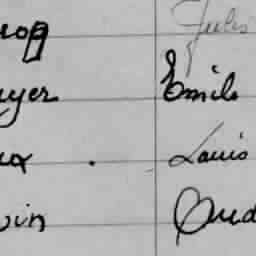 nop Jules
uyer Emile
ux . Louis
vin And